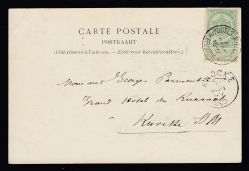 CARTE POSTALE
POSTKAART
(Côté réservé à l'adresse. — Zijde voor het adres alleen.)
Monsieur Georges Parmentier
Grand Hotel du
Knocke S/M
KNOCKE